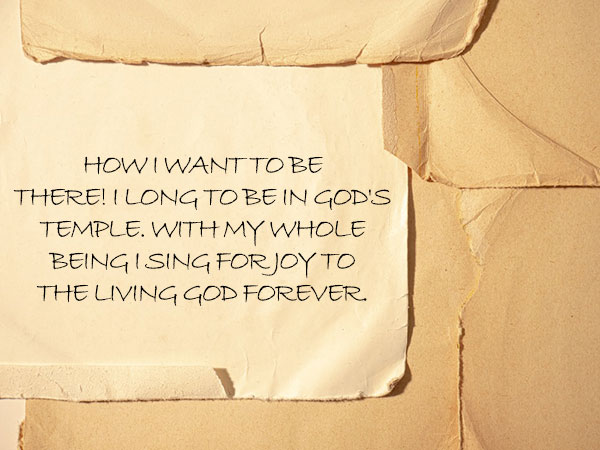 HOW I WANT TO BE
THERE! I LONG TO BE IN GOD'S
TEMPLE. WITH MY WHOLE
BEING I SING FOR JOY TO
THE LIVING GOD FOREVER.